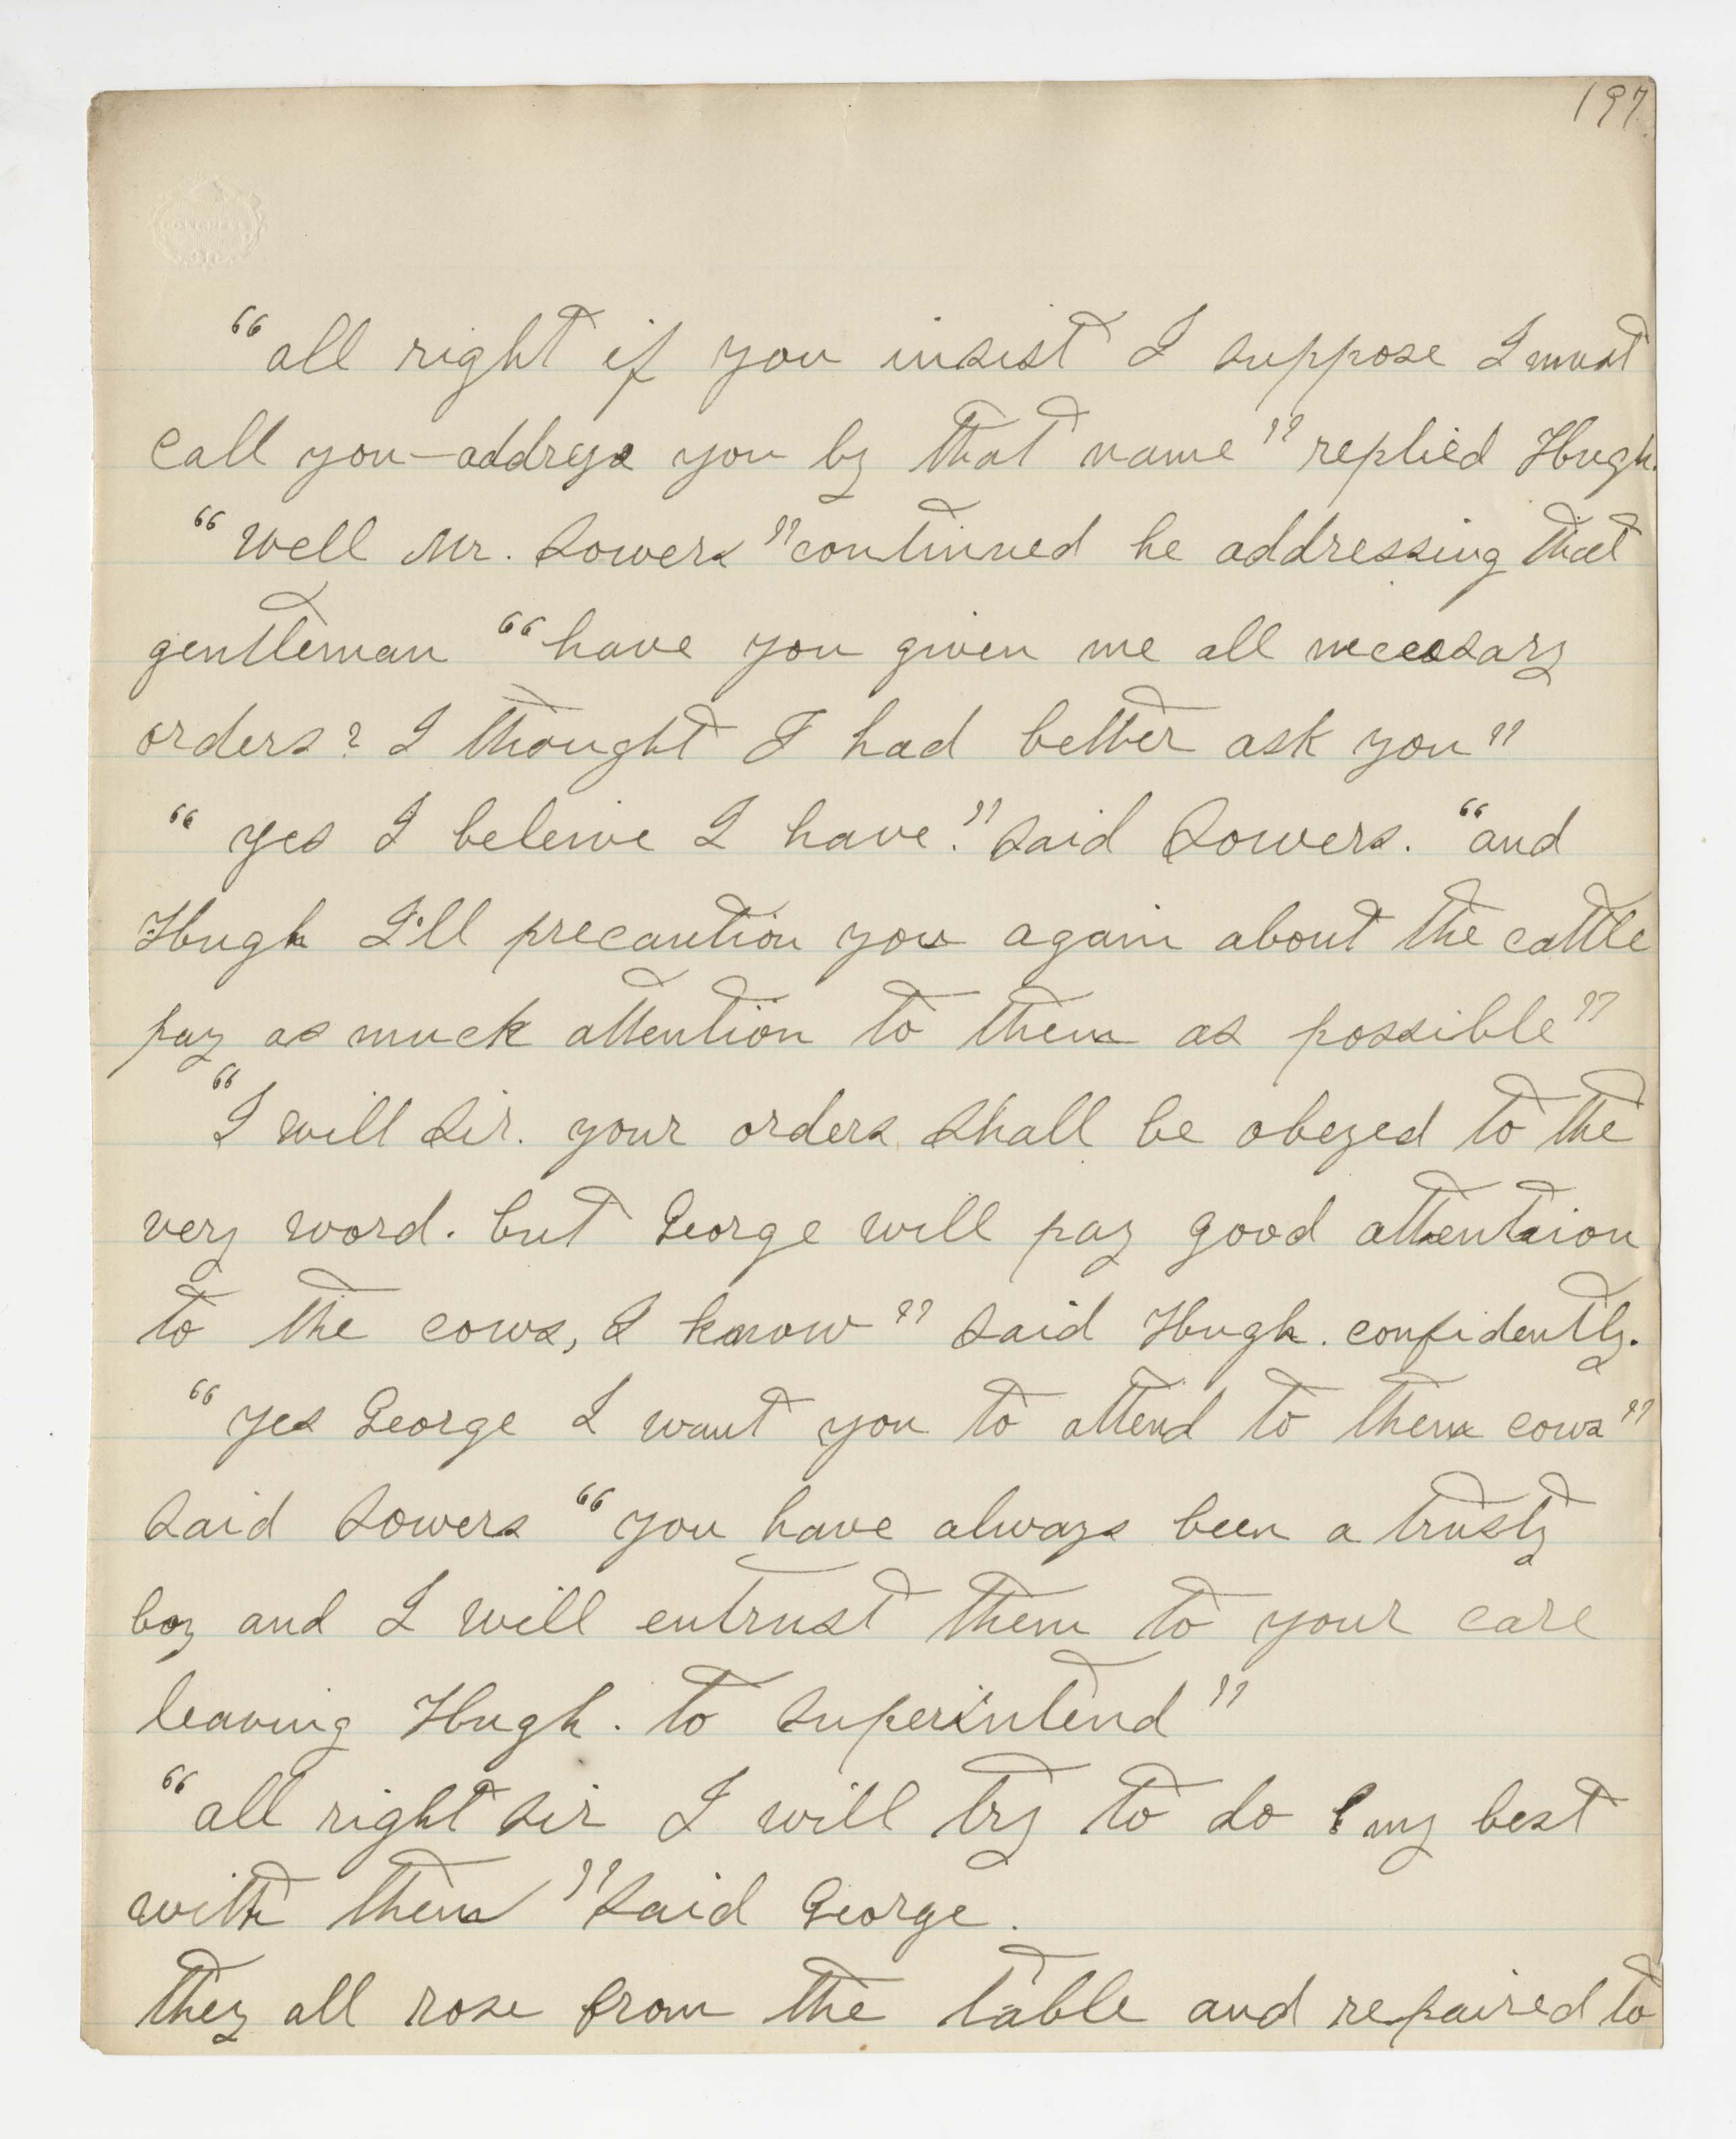 197
"all right if you insist I suppose I must
call you—address you by that name" replied Hugh.
"well Mr. Sowers" continued he addressing that
gentleman "have you given me all necessary
orders? I thought I had better ask you"
"yes I beleive I have." said Sowers. "and
Hugh I'll precaution you again about the cattle
pay as much attention to them as possible"
"I will sir. your orders shall be obeyed to the
very word. but George will pay good attention
to the cows, I know" said Hugh. confidently.
"yes George I want you to attend to them cows"
said Sowers "you have always been a trusty
boy and I will entrust them to your care
leaving Hugh. to superintend"
"all right sir I will try to do my best
with them" said George.
they all rose from the table and repaired to